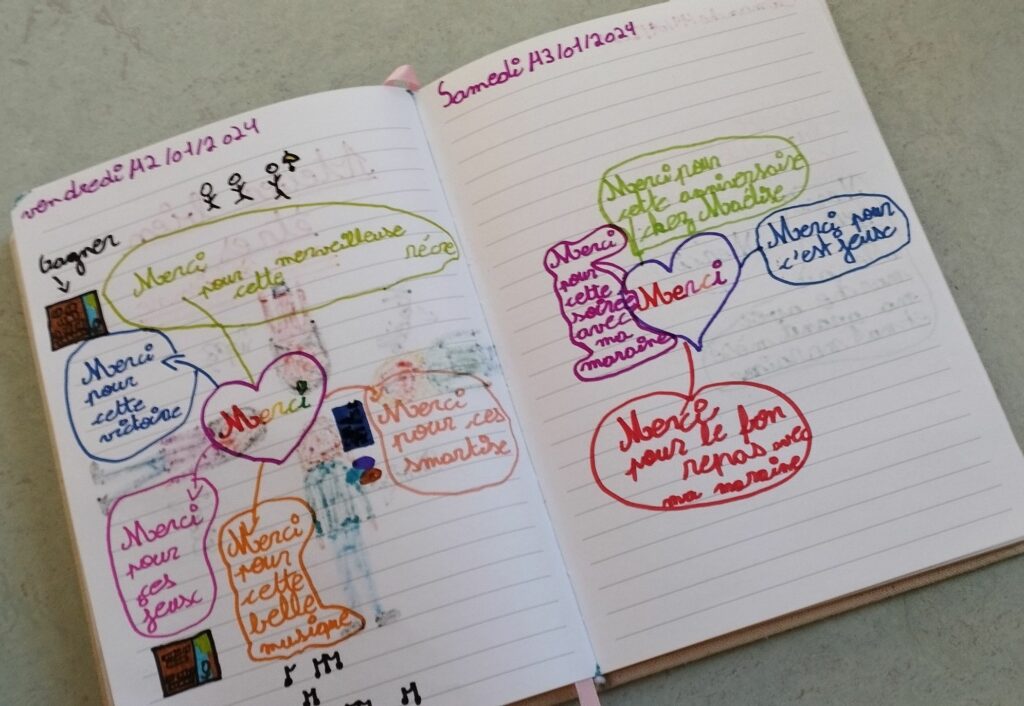 vendredi 12/01/2024
Gagner
Merci
pour merveilleuse
cette
récré
Merci
pour
cette
victoire
Merci
Merci
pour ces
smartise
Merci
pour
ces
jeux
Merci
pour
cette
belle
musique
Samedi 13/01/2024
Merci pour
cette anniversaire
chez Maélise
Merci
pour
cette
soirée
avec
ma
maraine
Merci
Merci pour
c'est jeux
Merci
pour le bon
repas avec
ma maraine